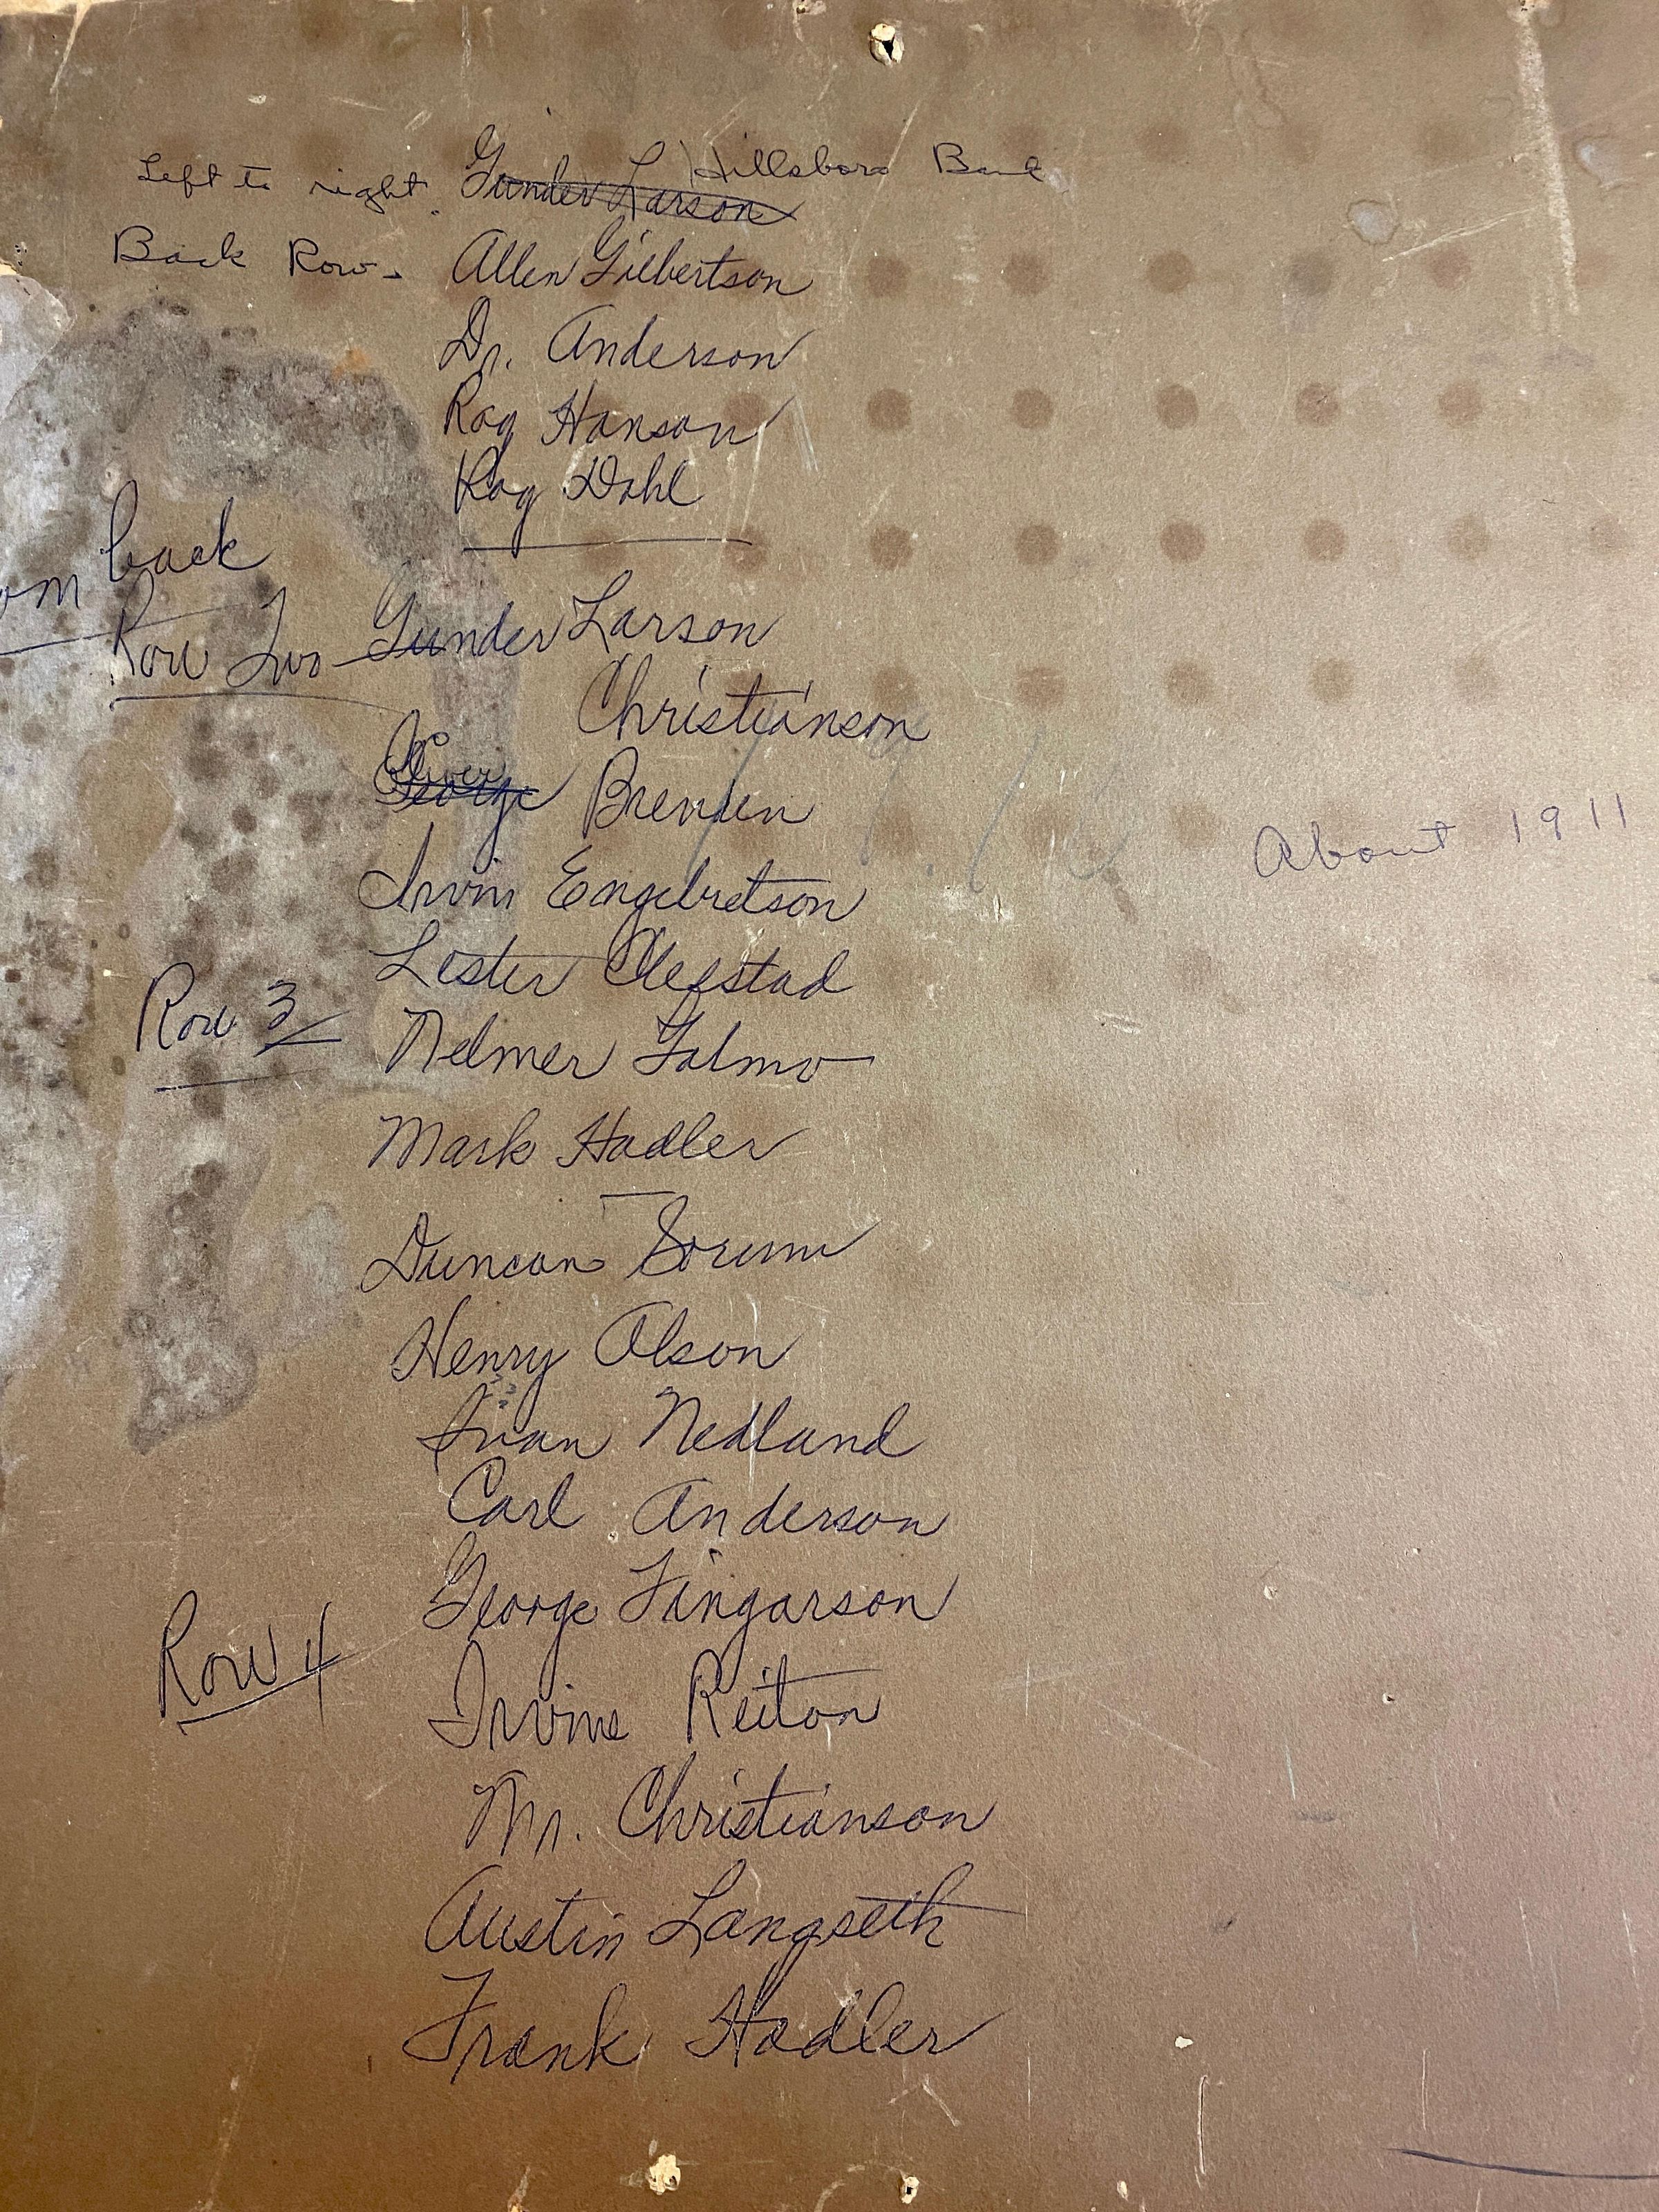 Left to right. Gunder Larson Hillsboro Band
Back Row - Allen Gilbertson
Dr. Anderson
Rag Hanson
Rag Dahl
om back
Row Two - Gunder Larson
Christianson
Oliver
George Brenden
Irvin Engebretson
Lester Elefstad
Row 3 Nelmer Galmo
Mark Hadler
Duncan Sorum
Henry Olson
Ivan Nedlund
Carl Anderson
George Fingarson
Row 4 Irvine Reiton
Mr. Christianson
Austin Langseth
Frank Hadler
About 1911